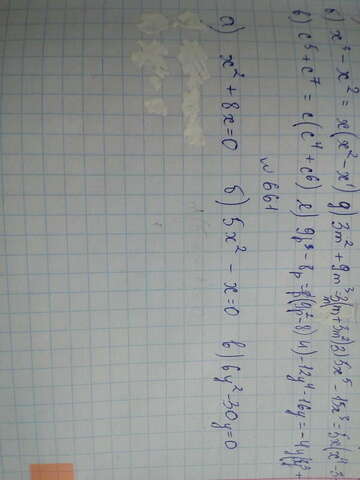 б) x³ - x² = x(x² - x¹) д) 3m² + 9m³ = 3(m + 3m²) 5x⁵ - 15x³ = 5x(x⁴ - 3
в) c⁵ + c⁷ = c(c⁴ + c⁶) е) 9p³ - 8p = p(9p² - 8) и) -12y⁴ - 16y = -4y(3y³ +
№ 661
а) x² + 8x = 0 б) 5x² - x = 0 в) 6y² - 30y = 0